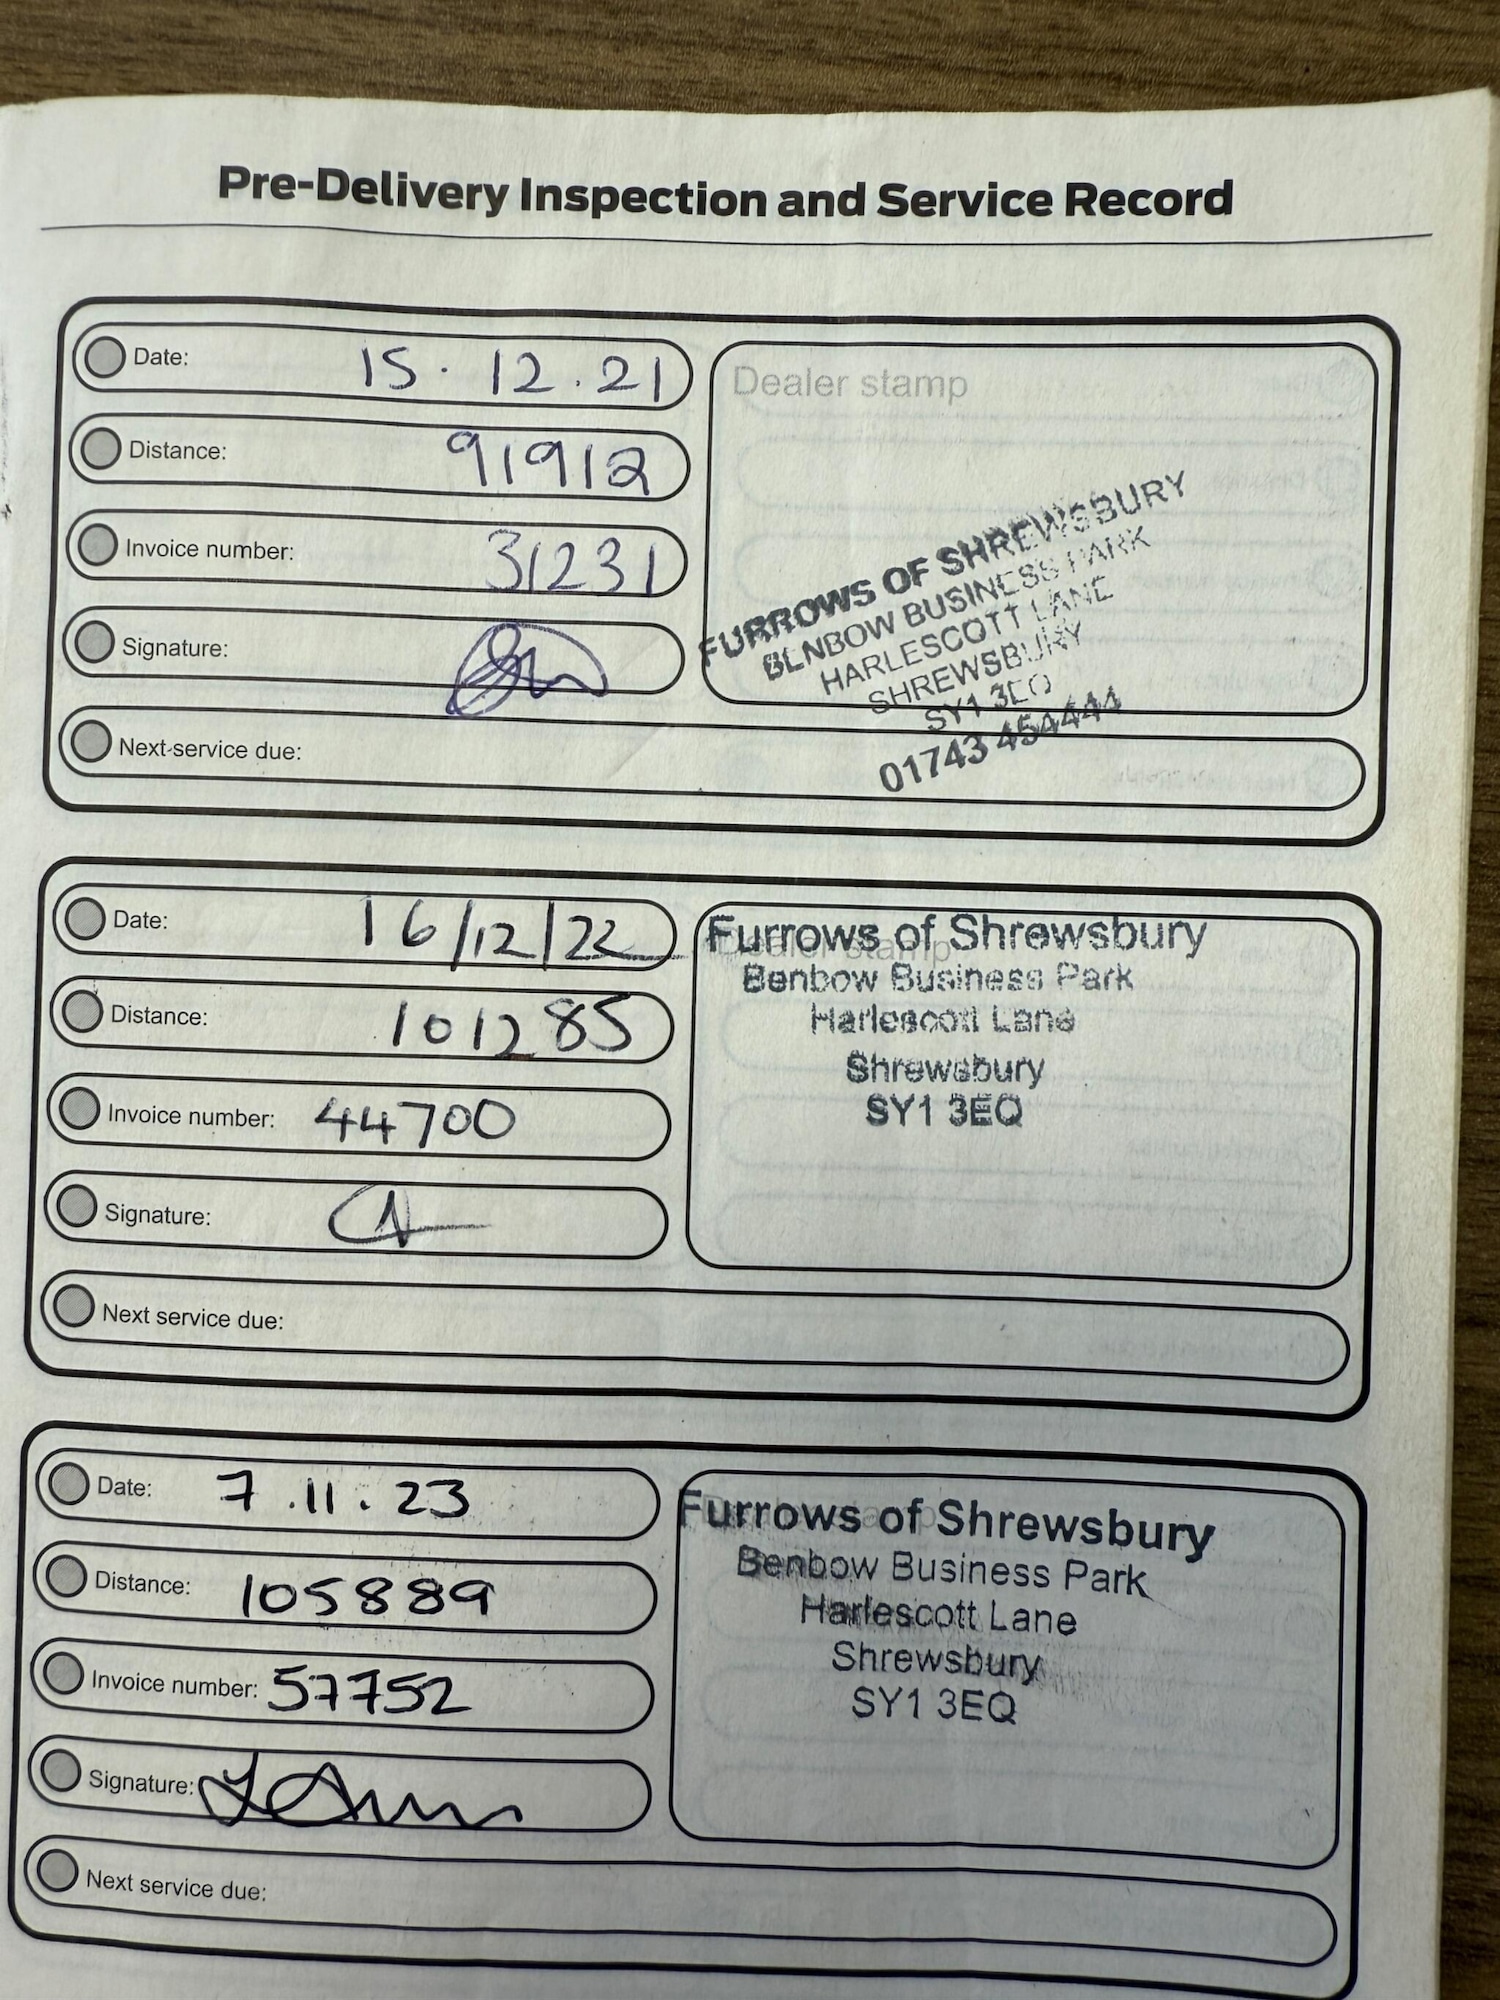 Pre-Delivery Inspection and Service Record
Date: 15.12.21
Distance: 91912
Invoice number: 31231
Signature:
Next service due:
Dealer stamp
FURROWS OF SHREWSBURY
BENBOW BUSINESS PARK
HARLESCOTT LANE
SHREWSBURY
SY1 3EQ
01743 454444
Date: 16/12/22
Distance: 101285
Invoice number: 44700
Signature:
Next service due:
Dealer stamp
Furrows of Shrewsbury
Benbow Business Park
Harlescott Lane
Shrewsbury
SY1 3EQ
Date: 7.11.23
Distance: 105889
Invoice number: 57752
Signature:
Next service due:
Furrows of Shrewsbury
Benbow Business Park
Harlescott Lane
Shrewsbury
SY1 3EQ